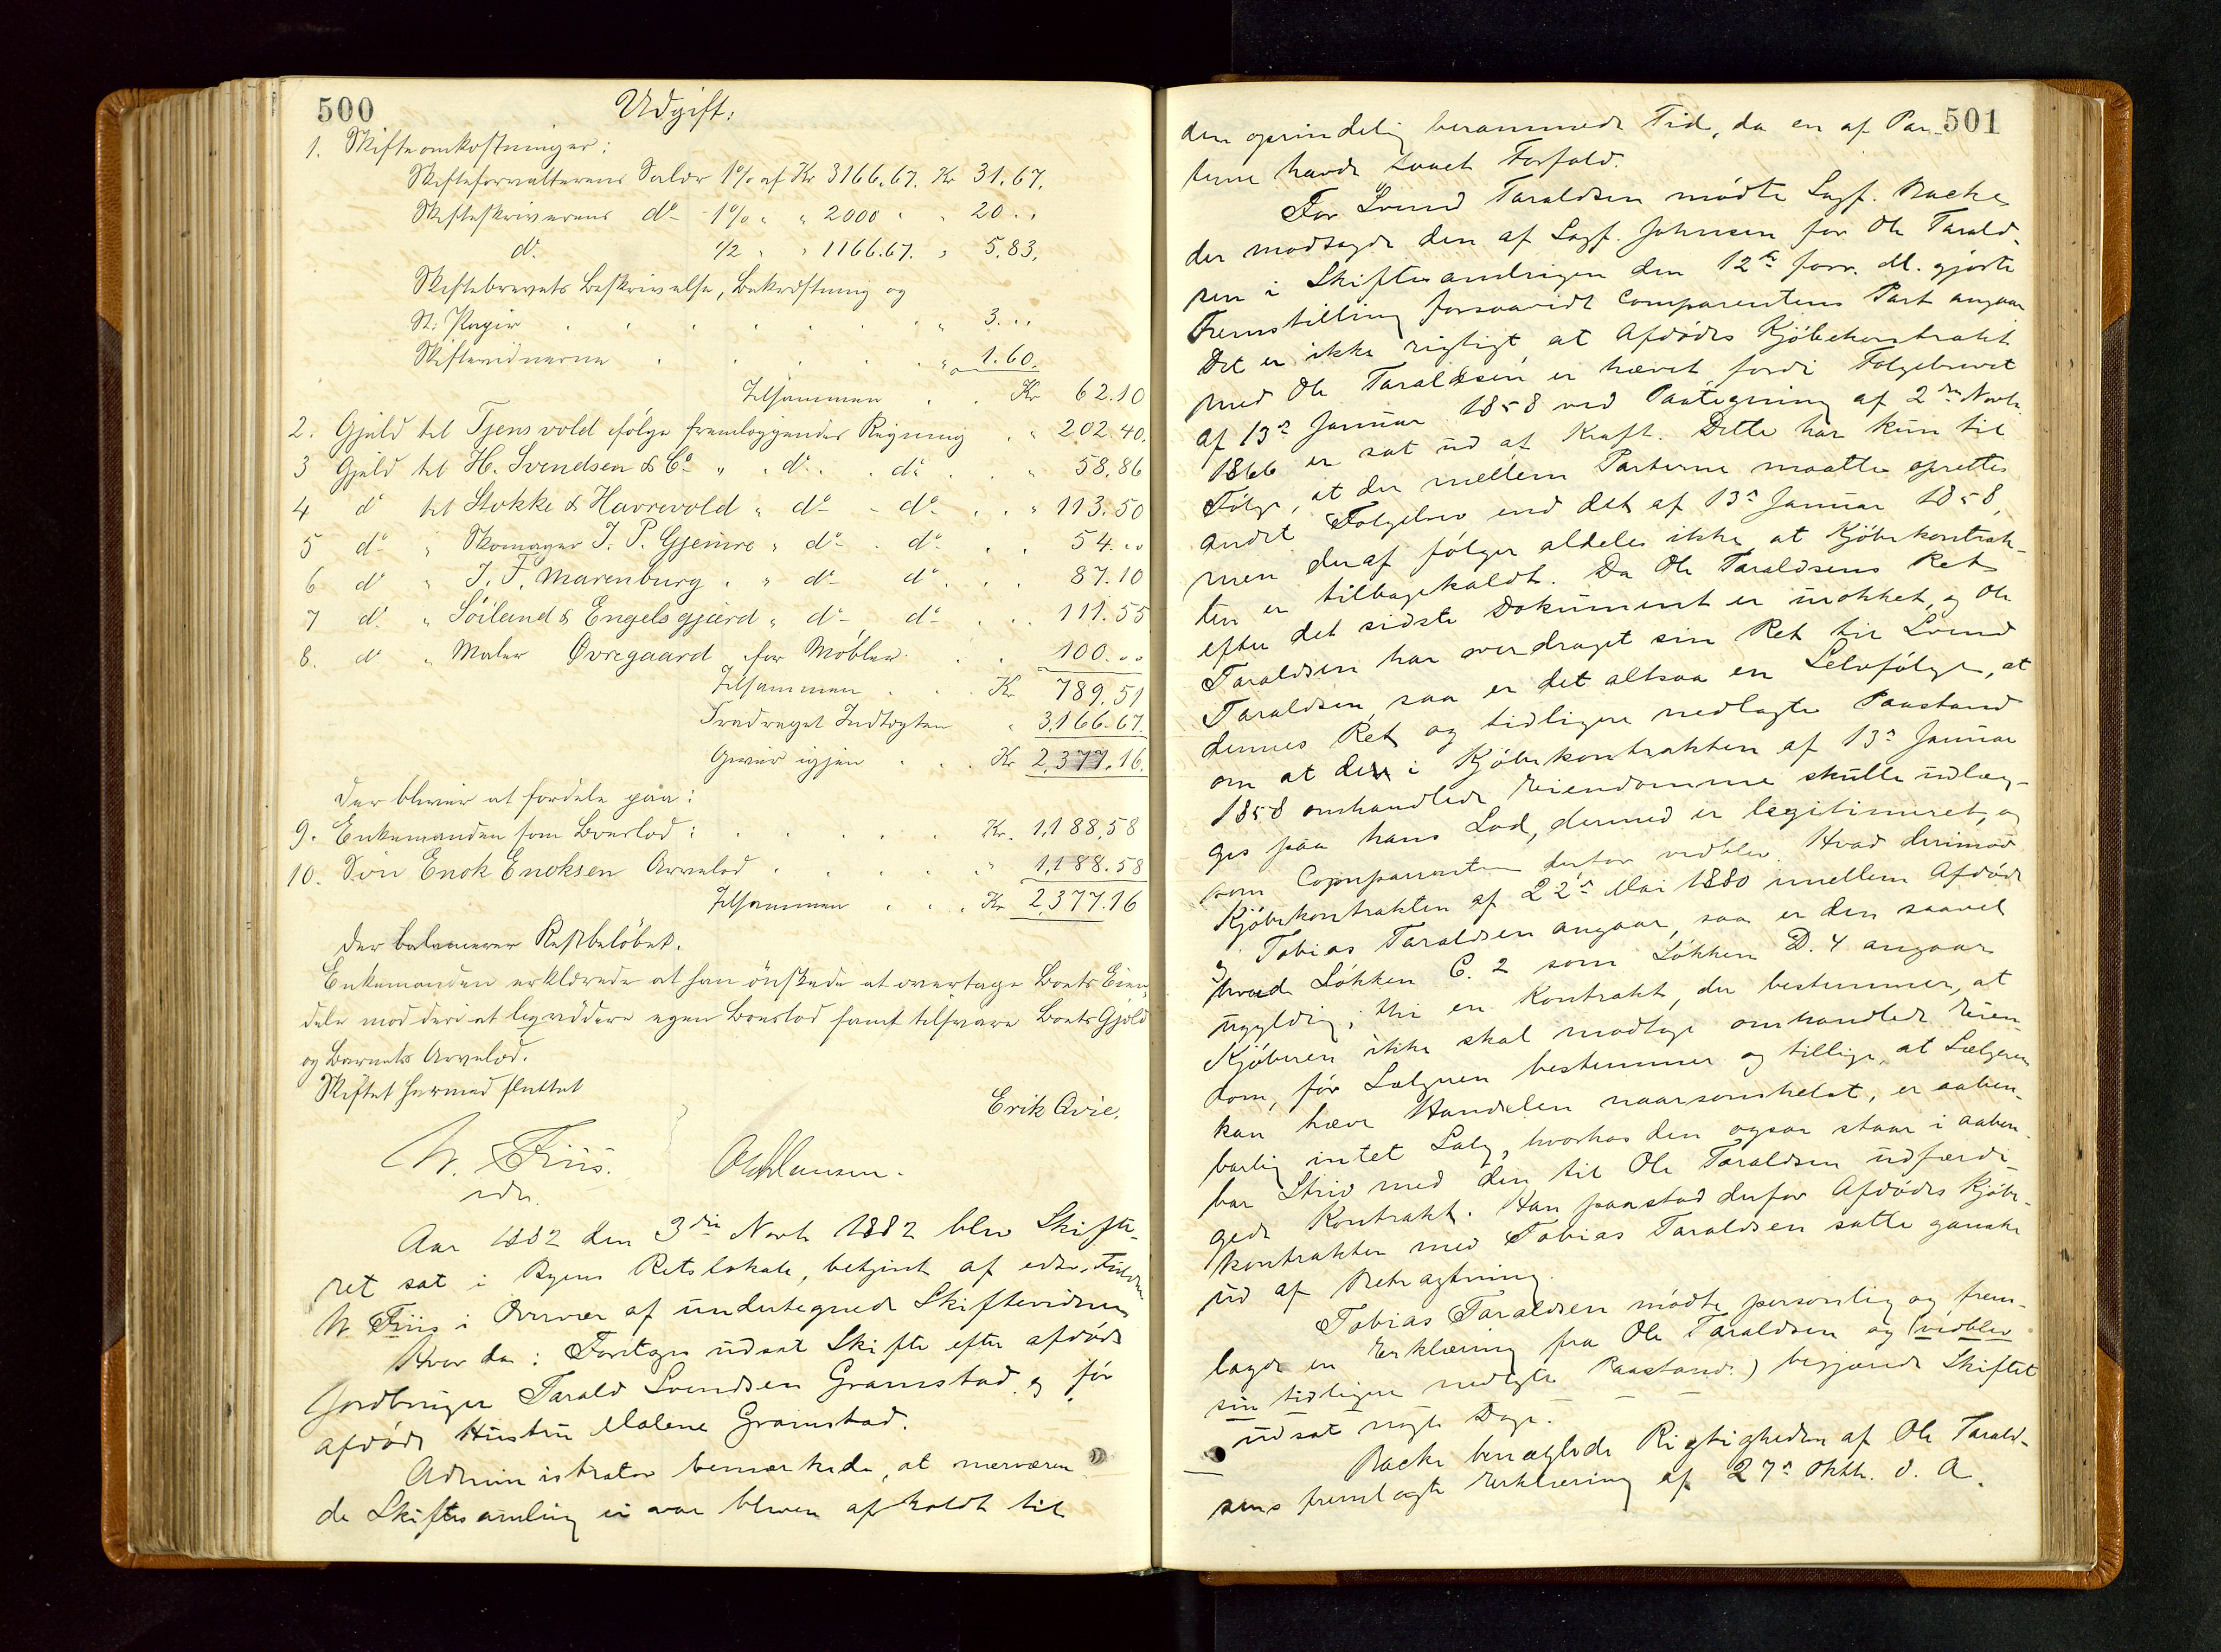 500
Udgift:
1. Skifteomkostninger:
Skifteforvalterens Salær 1% af Kr 3166.67. Kr 31.67.
Skifteskriverens do 1% " " 2000 " " 20 . .
do 1/2 " " 1166.67. " 5.83.
Skiftebrevets Beskrivelse, Bekræftning og
St: Papir . . . . . . " 3 . . .
Skiftevidnerne . . . . . " 1.60.
Tilsammen . . Kr 62.10
2. Gjæld til Tjensvold ifølge fremlæggendes Regning . " 202.40.
3 Gjæld til H. Svendsen & Co " " do . . do . . " 58.86
4 do til Stokke & Havrevold " do - do . . " 113.50
5 do " Skomager J. P. Gjemre " do . do . . 54 . .
6 do " J. F. Marenburg . " do do . . . 87.10
7 do " Söiland & Engelsgjærd " do do . . . 111.55
8. do " Maler Øvregaard for Møbler . . . 100 . .
Tilsammen . . . Kr 789.51
Fradraget Indtægten " 3,166.67.
Giver igjen . . . Kr 2,377.16.
der bliver at fordele paa:
9. Enkemanden som Boeslod: . . . . . Kr. 1,188,58
10. Søn Enok Enoksen Arvelod . . . . . " 1,188.58
Tilsammen . . . Kr 2,377.16
der balancerer Restbeløbet.
Enkemanden erklærede at han ønskede at overtage Boets Eien-
dele mod deri at beregne egen Boeslod samt tilsvare Boets Gjæld
og Barnets Arvelod.
Skiftet hermed sluttet
Erik Avie.
N. Friis.
edsv.
O Hansen.
Aar 1882 den 3die Novb 1882 blev Skifte-
ret sat i Byens Retslokale, betjent af edsv. Fuldm
N Friis i Overvær af undertegnede Skiftevidner
Hvor da: Foretoges udsat Skifte efter afdøde
Jordbruger Tarald Svendsen Gramstad og før
afdøde Hustru Malene Gramstad.
Administrator bemærkede, at nærværen
de Skiftesamling ei var bleven afholdt til
501
den oprindelig berammede Tid, da en af Par-
terne havde havt Forfald.
For Svend Taraldsen mødte Sagf. Backe
der modsagde den af Sagf. Johnsen for Ole Tarald-
sen i Skiftesamlingen den 12te forr. M. gjorte
Fremstilling forsaavidt Comparentens Part angaar
Det er ikke rigtigt at Afdødes Kjøbekontrakt
med Ole Taraldsen er hævet fordi Følgebrevet
af 13de Januar 1858 ved Paategning af 2den Novb.
1866 er sat ud af Kraft. Dette har kun til
Følge, at der mellem Parterne maatte oprettes
andet Følgebrev end det af 13de Januar 1858,
men deraf følger aldeles ikke at Kjøbekontrak-
ten er tilbagekaldt. Da Ole Taraldsens Ret
efter det sidste Dokument er urokket, og Ole
Taraldsen har overdraget sin Ret til Svend
Taraldsen, saa er det altsaa en Selvfølge, at
dennes Ret og tidligere nedlagte Paastand
om at den i Kjøbekontrakten af 13de Januar
1858 omhandlede Eiendomme skulle udlæg-
ges paa hans Lod, dermed er legitimeret, og
som Comparenten derfor vedblev. Hvad derimod
Kjøbekontrakten af 22de Mai 1880 mellem Afdøde
og Tobias Taraldsen angaar, saa er den saavel
hvad Løkken C. 2 som Løkken D. 4 angaar
ugyldig, thi en Kontrakt, der bestemmer, at
Kjøberen ikke skal modtage omhandlede Eien-
dom, før Sælgeren bestemmer og tillige at Sælgeren
kan hæve Handelen naarsomhelst, er aaben-
barlig intet Salg, hvorhos den ogsaa staar i aaben-
bar Strid med den til Ole Taraldsen udfærdi-
gede Kontrakt. Han paastod derfor Afdødes Kjøbe-
kontrakten med Tobias Taraldsen satte ganske
ud af Betragtning.
Tobias Taraldsen mødte personlig og frem-
lagde en Erklæring fra Ole Taraldsen og (vedblev
sin tidligere nedlagte Paastand.) begjærede Skiftet
udsat nogle Dage.
Backe benægtede Rigtigheden af Ole Tarald-
sens fremlagte Erklæring af 27de Oktb. d. A.